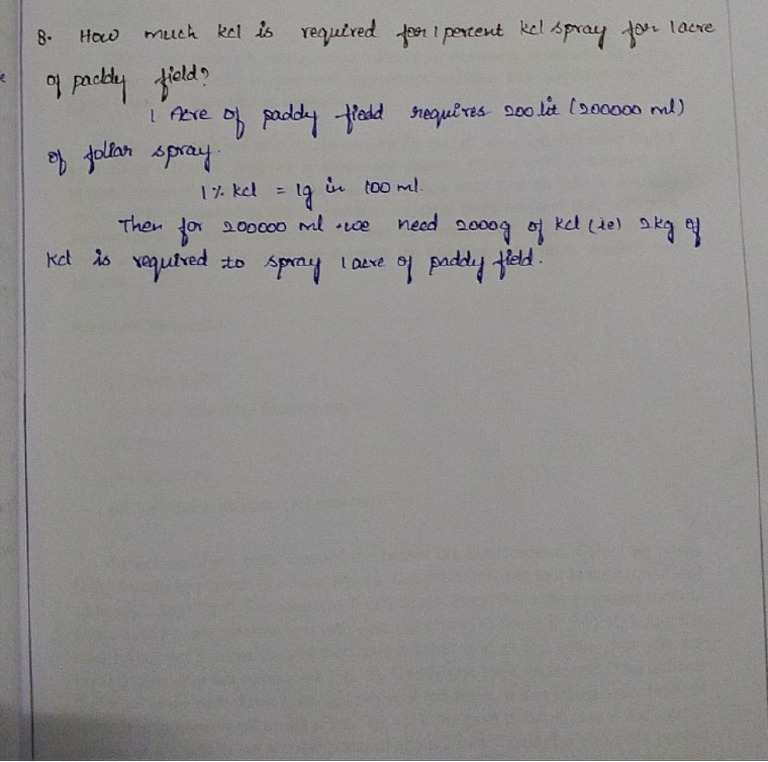 8. How much kcl is required for 1 percent kcl spray for 1 acre
of paddy field?
1 Acre of paddy field requires 200 lit (200000 ml)
of foliar spray.
1% kcl = 1g in 100 ml.
Then for 200000 ml we need 2000g of kcl (ie) 2kg of
kcl is required to spray 1 acre of paddy field.